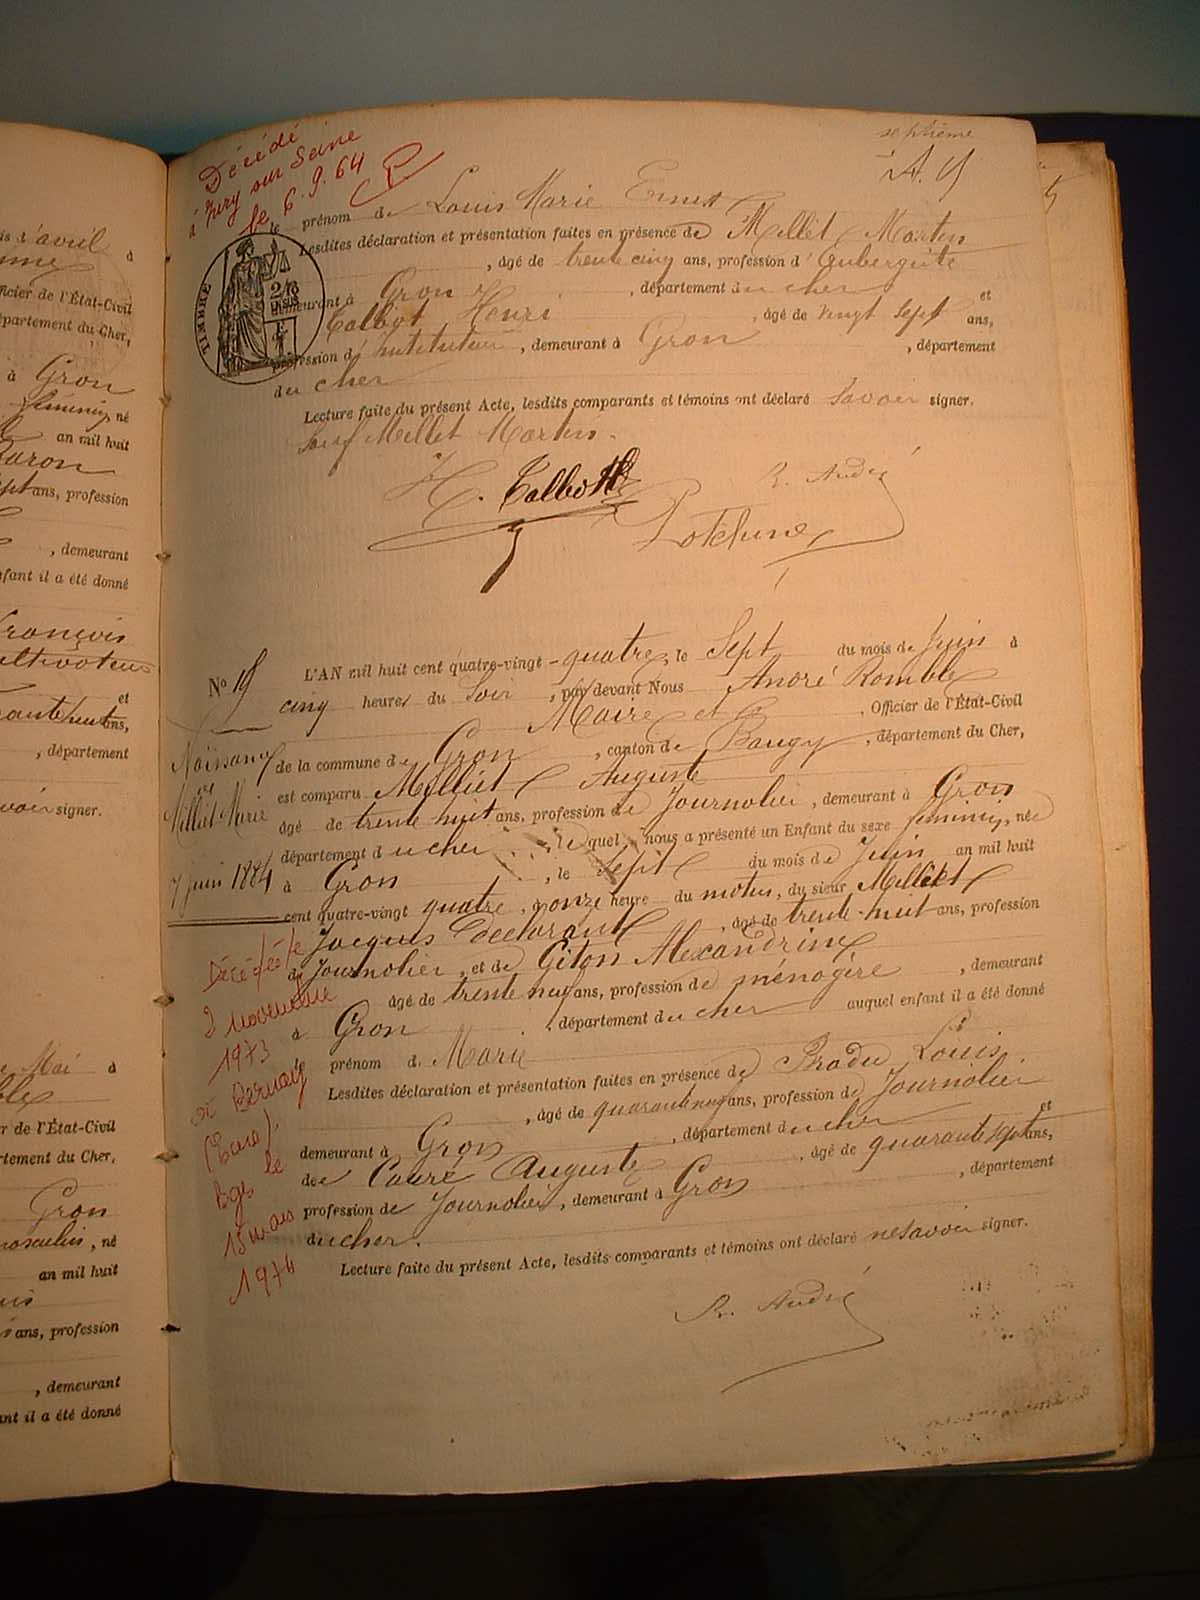 is d'avril à
Officier de l'État-Civil
département du Cher,
à Gron
féminin, né
an mil huit
ans, profession
, demeurant
enfant il a été donné
François
cultivateur
et
ans,
, département
savoir signer.
Mai à
r de l'État-Civil
rtement du Cher,
Gron
masculin, né
an mil huit
ans, profession
, demeurant
ant il a été donné
septième
Décédé
à Ivry sur Seine
le 6.9.64
TIMBRE
le prénom de Louis Marie Ernest
Lesdites déclaration et présentation faites en présence de Millet Martin
, âgé de trente cinq ans, profession d'aubergiste
demeurant à Gron, département du cher et
Talbot Henri, âgé de vingt sept ans,
profession d'instituteur, demeurant à Gron, département
du cher
Lecture faite du présent Acte, lesdits comparants et témoins ont déclaré savoir signer.
sauf Millet Martin.
H. Talbot
R. André
No 19
Naissance
de
Milliet Marie
7 juin 1884
L'AN mil huit cent quatre-vingt-quatre, le Sept du mois de juin à
cinq heures du soir, par devant Nous André Romble
Maire, Officier de l'État-Civil
de la commune de Gron, canton de Baugy, département du Cher,
est comparu Milliet Auguste
âgé de trente huit ans, profession de Journalier, demeurant à Gron
département du cher, lequel nous a présenté un Enfant du sexe féminin, née
à Gron, le sept du mois de Juin an mil huit
cent quatre-vingt quatre, à onze heure du matin, du sieur Milliet
Jacques déclarant, âgé de trente-huit ans, profession
de Journalier, et de Giton Alexandrine
âgé de trente neuf ans, profession de ménagère, demeurant
à Gron, département du cher auquel enfant il a été donné
le prénom de Marie
Lesdites déclaration et présentation faites en présence de Bradu Louis
, âgé de quarante neuf ans, profession de Journalier
demeurant à Gron, département du cher et
de Carré Auguste, âgé de quarante sept ans,
profession de Journalier, demeurant à Gron, département
du cher.
Lecture faite du présent Acte, lesdits comparants et témoins ont déclaré ne savoir signer.
R. André
Décédée le
2 novembre
1973
à Bernay
(Eure).
Bgs le
15 mars
1974